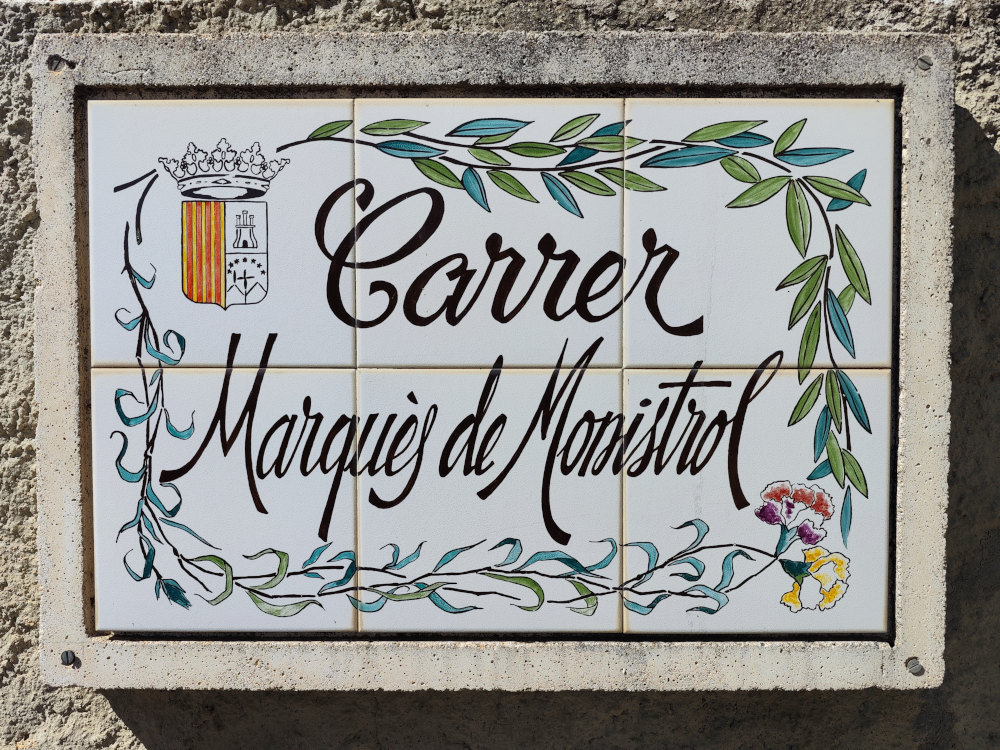 Carrer
Marquès de Monistrol